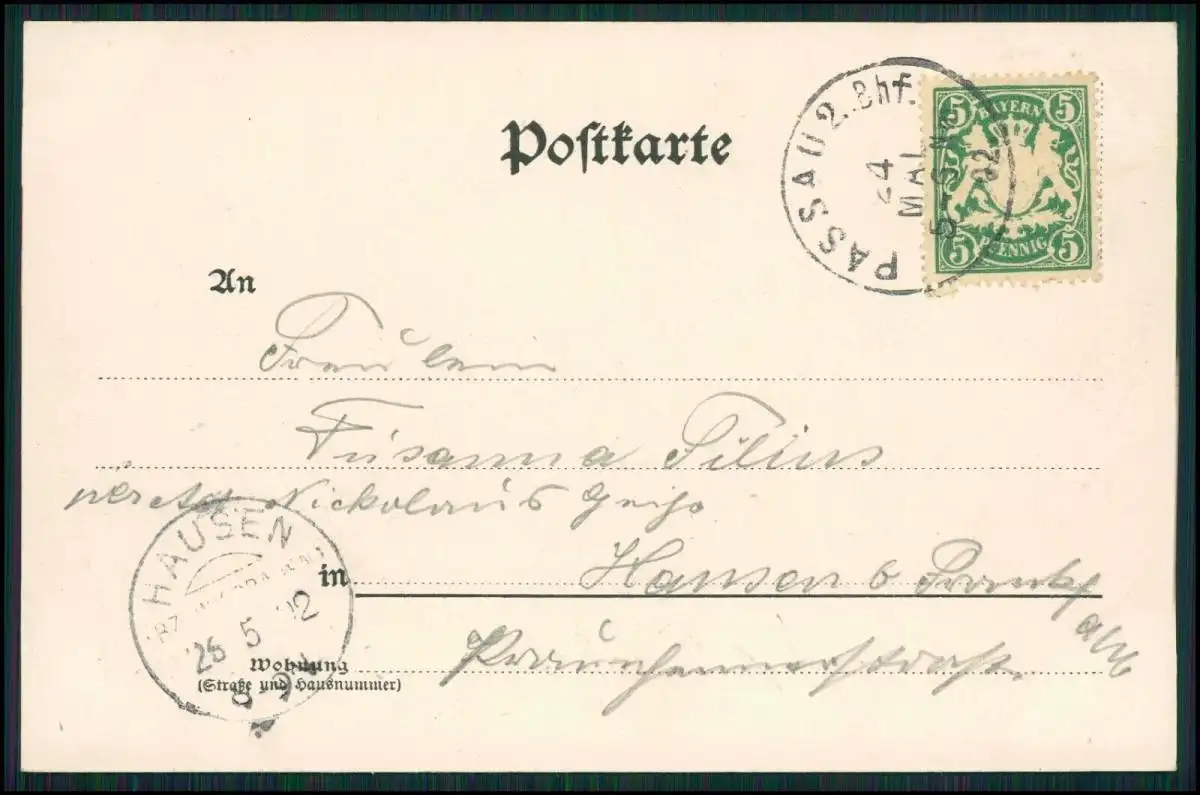 Postkarte
PASSAU 2. Bhf.
24
MAI
02
5 BAYERN 5
5 PFENNIG 5
An
Fräulein
Susanna Filius
Nickolaus
in Hausen b Frankf
a/M
HAUSEN
26 5 02
8-9
Wohnung
(Straße und Hausnummer)